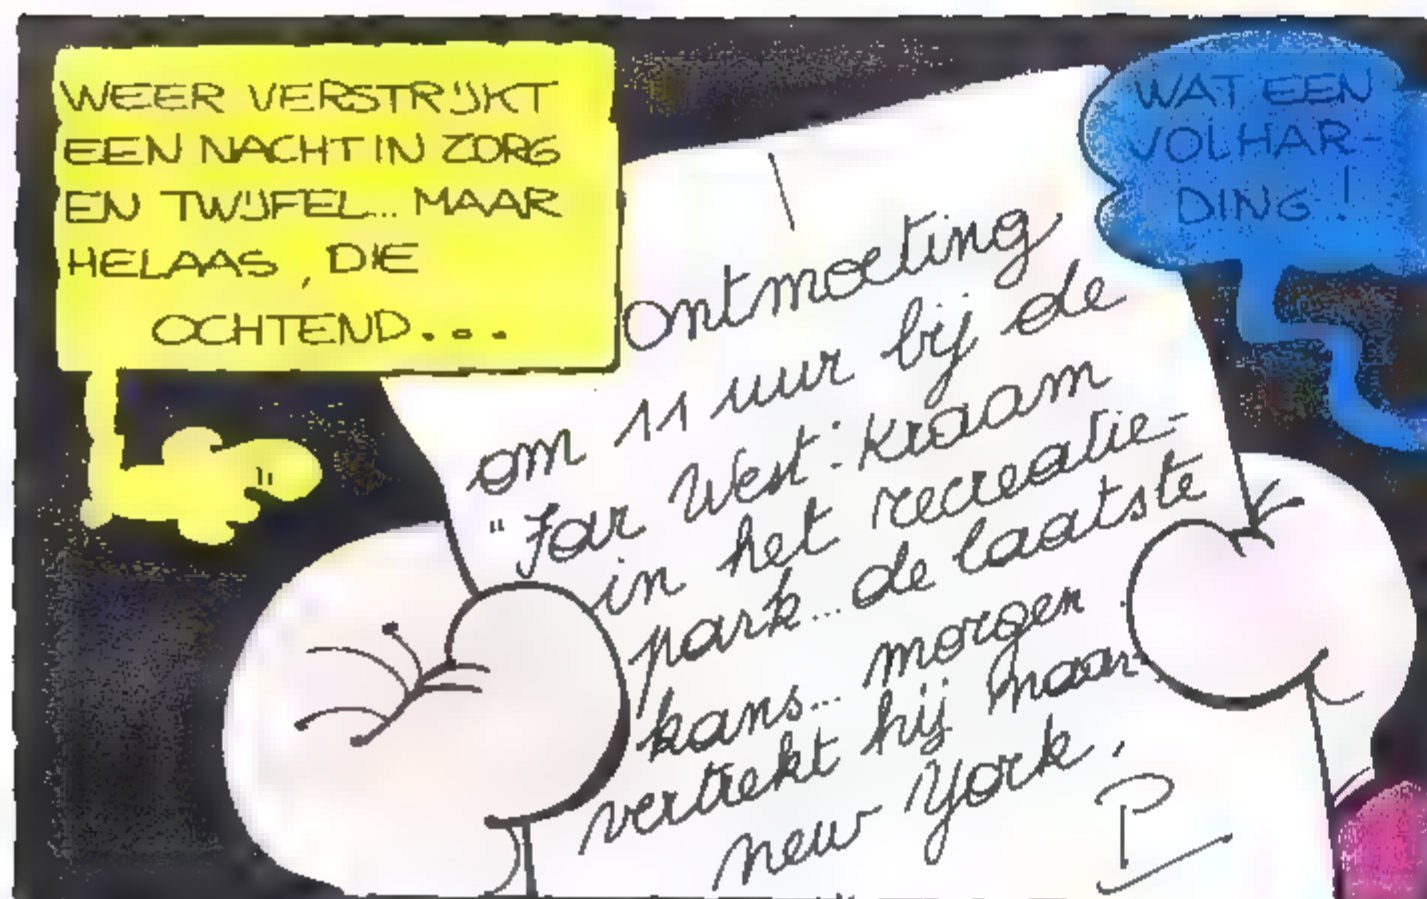 WEER VERSTRIJKT
EEN NACHT IN ZORG
EN TWIJFEL... MAAR
HELAAS, DIE
OCHTEND...
WAT EEN
VOLHAR-
DING!
ontmoeting
om 11 uur bij de
"Far West: kraam
in het recreatie-
park... de laatste
kans... morgen
vertrekt hij naar
new york,
P